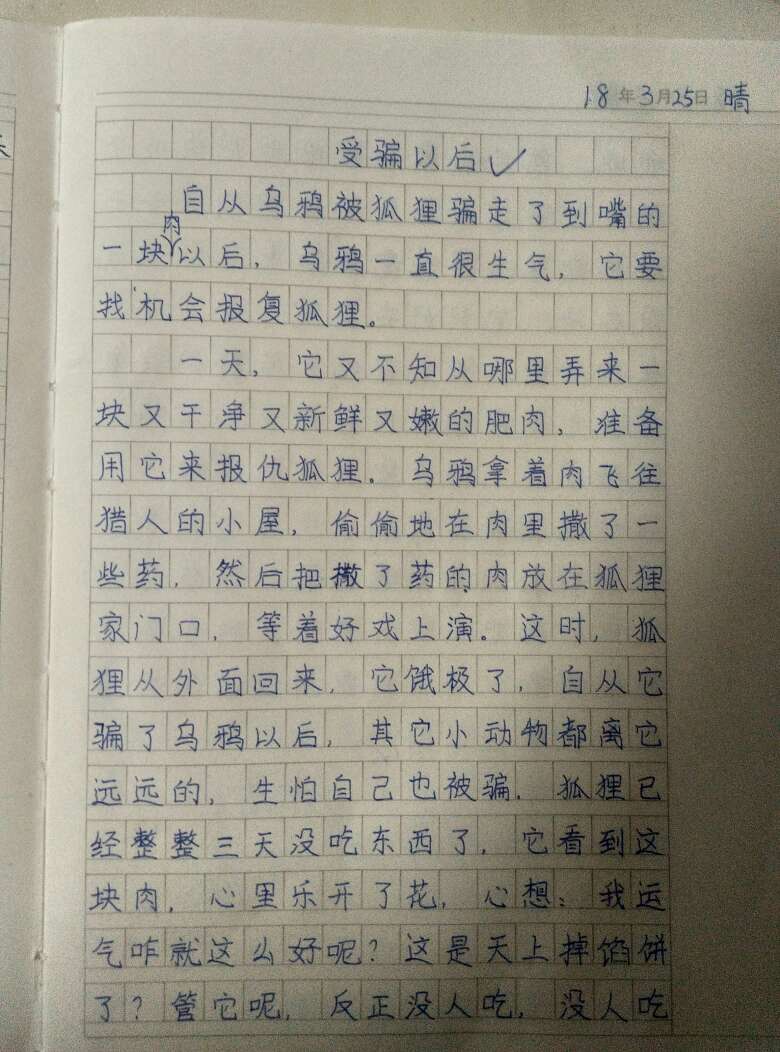 18年3月25日 晴
受骗以后✓
自从乌鸦被狐狸骗走了到嘴的
一块肉以后，乌鸦一直很生气，它要
找机会报复狐狸。
一天，它又不知从哪里弄来一
块又干净又新鲜又嫩的肥肉，准备
用它来报仇狐狸。乌鸦拿着肉飞往
猎人的小屋，偷偷地在肉里撒了一
些药，然后把撒了药的肉放在狐狸
家门口，等着好戏上演。这时，狐
狸从外面回来，它饿极了，自从它
骗了乌鸦以后，其它小动物都离它
远远的，生怕自己也被骗．狐狸已
经整整三天没吃东西了，它看到这
块肉，心里乐开了花，心想：我运
气咋就这么好呢？这是天上掉馅饼
了？管它呢，反正没人吃，没人吃